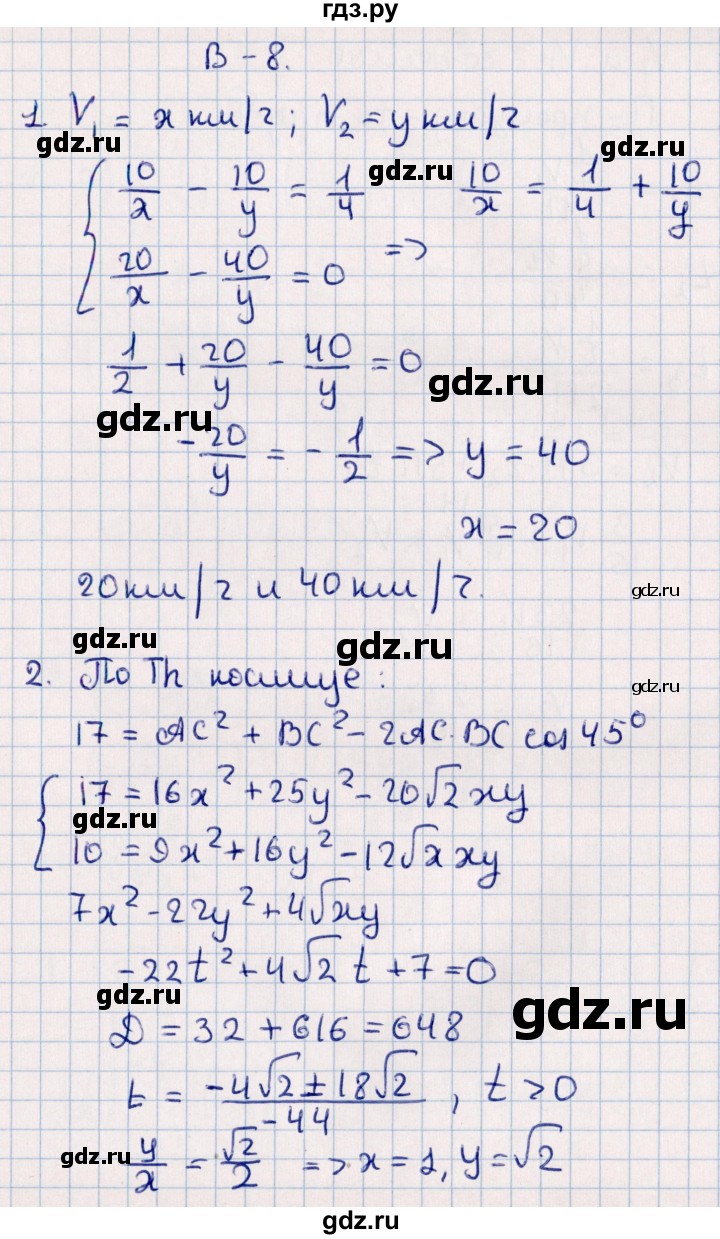 гдз.ру
В – 8.
1. V₁ = x км/ч; V₂ = y км/ч
gdz.ru
gdz.ru
{ 10/x − 10/y = 1/4     10/x = 1/4 + 10/y
gdz.ru
20/x − 40/y = 0   =>
1/2 + 20/y − 40/y = 0
gdz.ru
gdz.ru
−20/y = −1/2 => y = 40
x = 20
20 км/ч и 40 км/ч.
gdz.ru
gdz.ru
gdz.ru
2. По Th косинусе:
gdz.ru
17 = AC² + BC² − 2AC·BC cos 45°
{ 17 = 16x² + 25y² − 20√2xy
gdz.ru
10 = 9x² + 16y² − 12√x xy
7x² − 22y² + 4√xy
−22t² + 4√2 t + 7 = 0
gdz.ru
gdz.ru
D = 32 + 616 = 648
t = (−4√2 ± 18√2)/−44 , t > 0
gdz.ru
y/x = √2/2 => x = 2, y = √2
gdz.ru